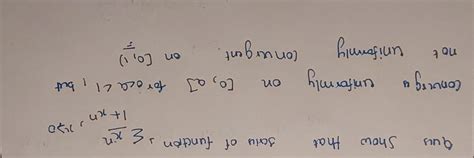 Ques Show that series of function, Σ xⁿ / 1+xⁿ, x≥0
converges uniformly on [0, a] for 0<a<1, but
not uniformly convergent on [0, 1)